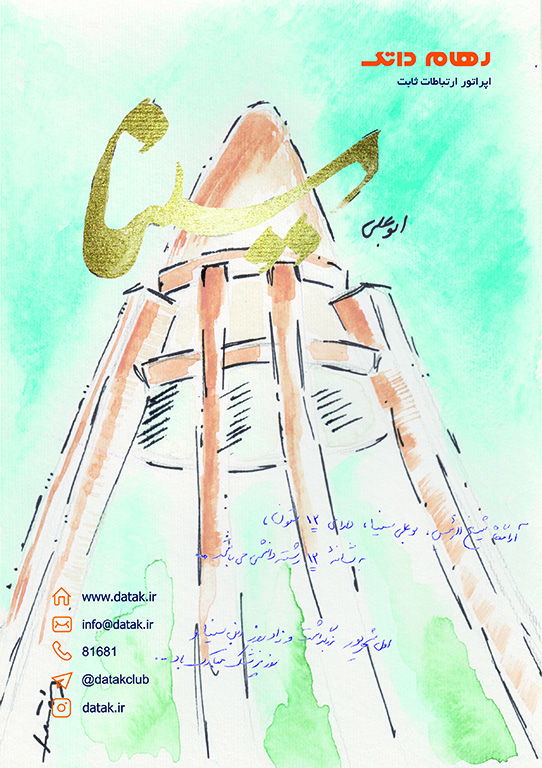 رهام داتک
اپراتور ارتباطات ثابت
سینا
ابوعلی
آرامگاه شیخ الرئیس، بوعلی سینا، دارای ۱۲ ستون،
به نشانهٔ ۱۲ رشته دانشی می باشد
اول شهریور بزرگداشت و زادروز ابن سینا و
روز پزشک مبارک باد...
www.datak.ir
info@datak.ir
81681
@datakclub
datak.ir